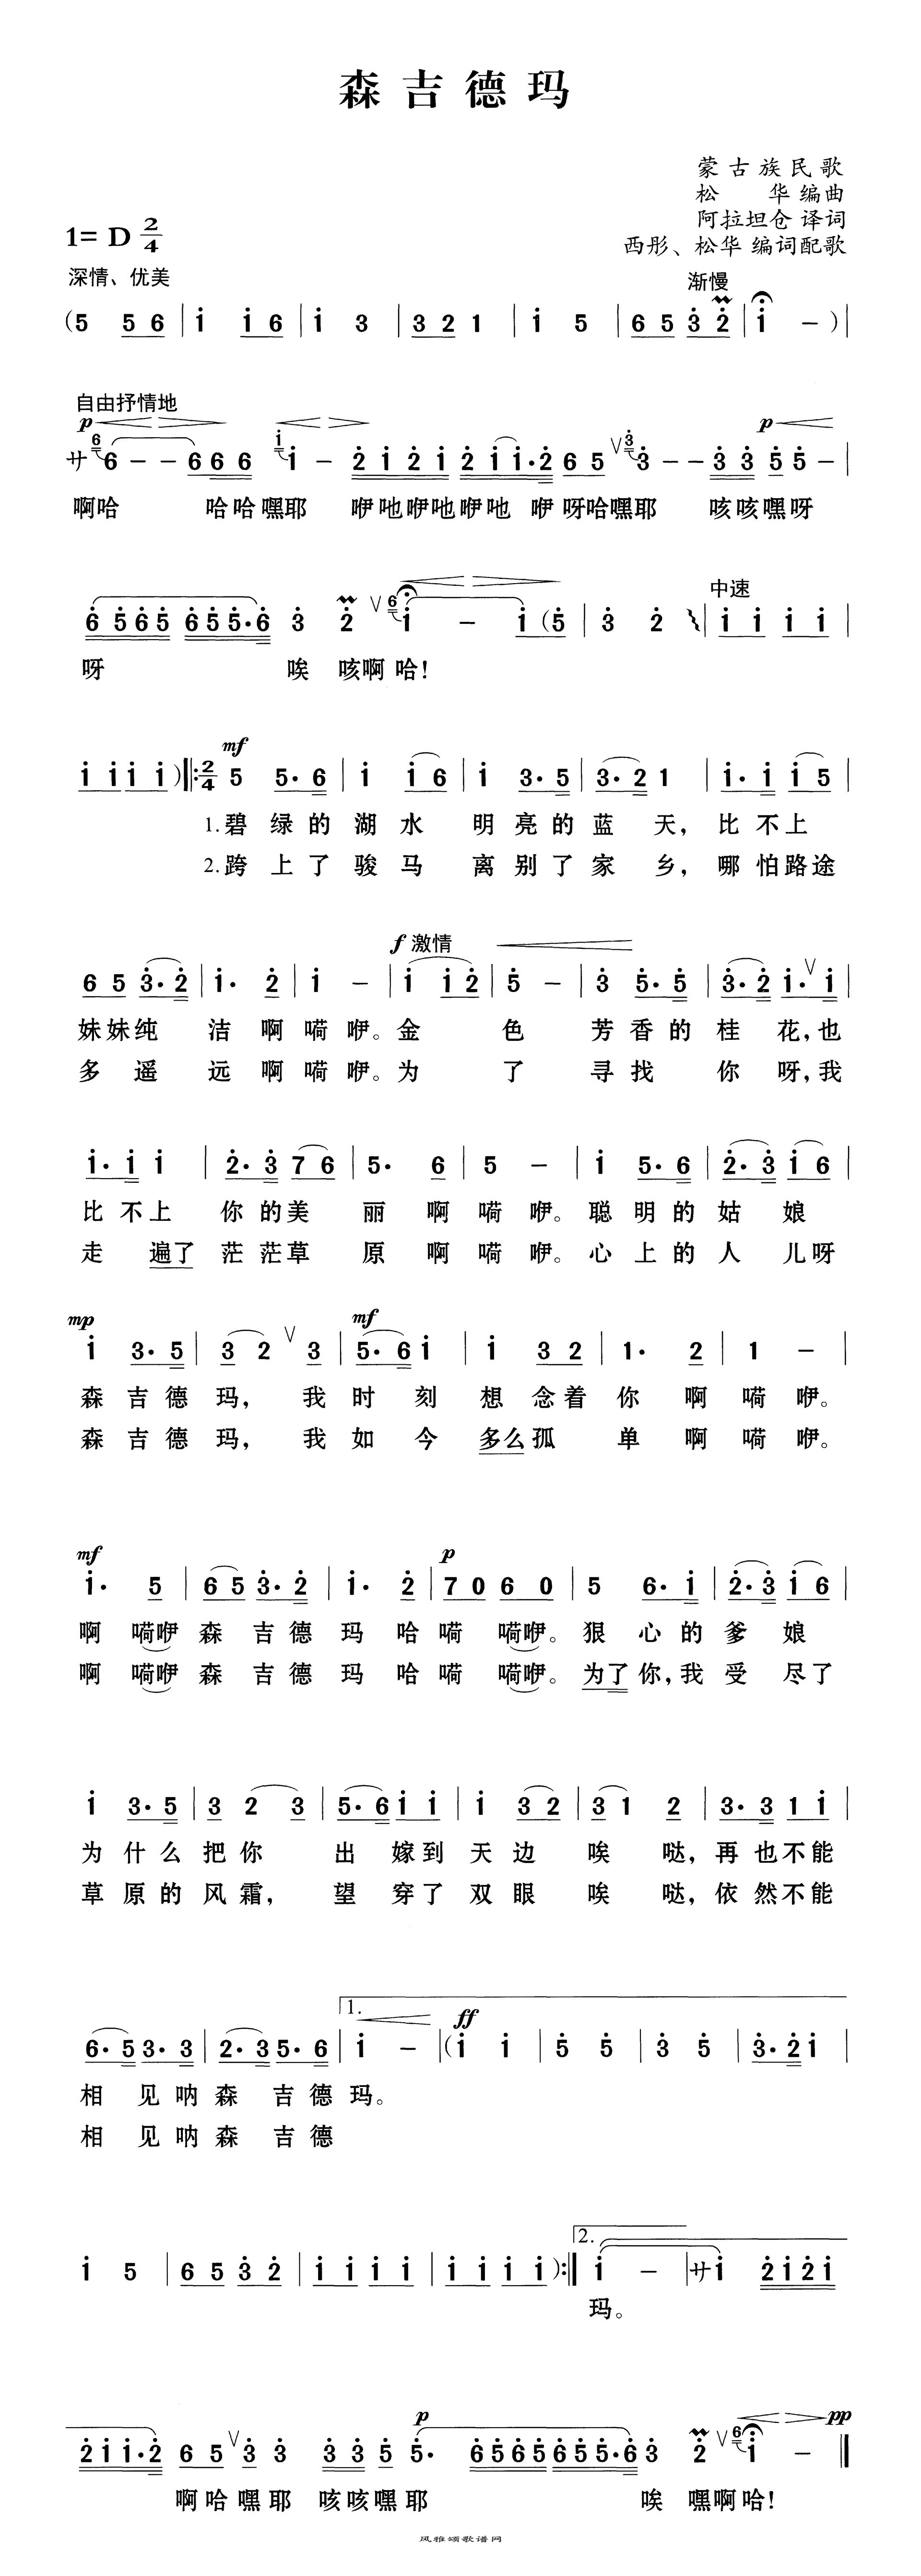 森吉德玛
蒙古族民歌
松 华 编曲
阿拉坦仓 译词
西彤、松华 编词配歌
1= D 2/4
深情、优美
渐慢
(5 56 | i i6 | i 3 | 321 | i 5 | 65 3 2 | i – ) |
自由抒情地
p p
サ 6 6 – – 6 6 6 i i – 2 i 2 i 2 i i· 2 6 5 V 3 3 – – 3 3 5 5 – |
啊哈 哈哈嘿耶 咿吔咿吔咿吔 咿呀哈嘿耶 咳咳嘿呀
中速
6 5 6 5 6 5 5· 6 3 2 V 6 i – i (5 | 3 2 | i i i i |
呀 唉 咳啊哈!
mf
i i i i ) ‖: 2/4 5 5· 6 | i i 6 | i 3· 5 | 3· 2 1 | i· i i 5 |
1.碧绿的湖水 明亮的蓝天,比不上
2.跨上了骏马 离别了家乡,哪怕路途
f 激情
6 5 3· 2 | i· 2 | i – | i i 2 | 5 – | 3 5· 5 | 3· 2 i· V i |
妹妹纯 洁啊嗬咿。金 色 芳香的桂花,也
多遥 远啊嗬咿。为 了 寻找 你呀,我
i· i i | 2· 3 7 6 | 5· 6 | 5 – | i 5· 6 | 2· 3 i 6 |
比不上 你的美 丽 啊嗬咿。聪明的姑 娘
走 遍了 茫茫草 原 啊嗬咿。心上的人 儿呀
mp mf
i 3· 5 | 3 2 V 3 | 5· 6 i | i 3 2 | 1· 2 | 1 – |
森吉德玛, 我时刻 想念着你 啊嗬咿。
森吉德玛, 我如今 多么孤 单 啊嗬咿。
mf p
i· 5 | 6 5 3· 2 | i· 2 | 7 0 6 0 | 5 6· i | 2· 3 i 6 |
啊 嗬咿森 吉德玛 哈嗬 嗬咿。狠心的爹娘
啊 嗬咿森 吉德玛 哈嗬 嗬咿。为了你,我受 尽了
i 3· 5 | 3 2 3 | 5· 6 i i | i 3 2 | 3 1 2 | 3· 3 1 i |
为什么把你 出 嫁到天边 唉 哒,再也不能
草原的风霜, 望 穿了双眼 唉 哒,依然不能
1. ff
6· 5 3· 3 | 2· 3 5· 6 | i – | (i i | 5 5 | 3 5 | 3· 2 i |
相 见呐森 吉德玛。
相 见呐森 吉德
2.
i 5 | 6 5 3 2 | i i i i | i i i i ) :‖ i – | サ i 2 i 2 i
玛。
p pp
2 i i· 2 6 5 V 3 3 3 3 5 5· 6 5 6 5 6 5 5· 6 3 2 V 6 i – ‖
啊哈嘿耶 咳咳嘿耶 唉 嘿啊哈!
风雅颂歌谱网